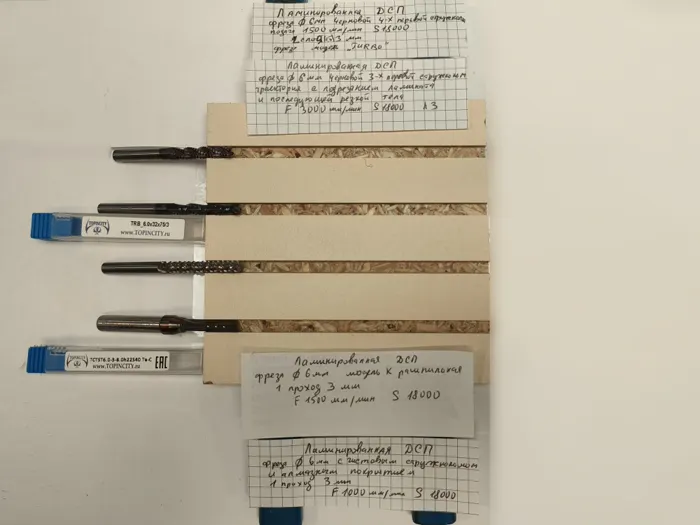 Ламинированная ДСП
фреза ф 6мм черновой 4-х перовой
подача 1500 мм/мин S 18000
3 мм
фреза модек "TURBO"
Ламинированная ДСП
фреза ф 6 мм черновой 3-х перовой стружколом
траектория с подрезанием ламината
и последующей резкой тела
F 3000 мм/мин S 18000 3
TRIB_6.0x32x75/3
www.TOPINCITY.ru
TOPINCITY
www.TOPINCITY.ru
EAC
Ламинированная ДСП
фреза ф 6 мм модель К рашпильная
1 проход 3 мм
F 1500 мм/мин S 18000
Ламинированная ДСП
фреза ф 6мм с чистовым стружколомом
и алмазным покрытием
1 проход 3 мм
F 1000 мм/мин S 18000